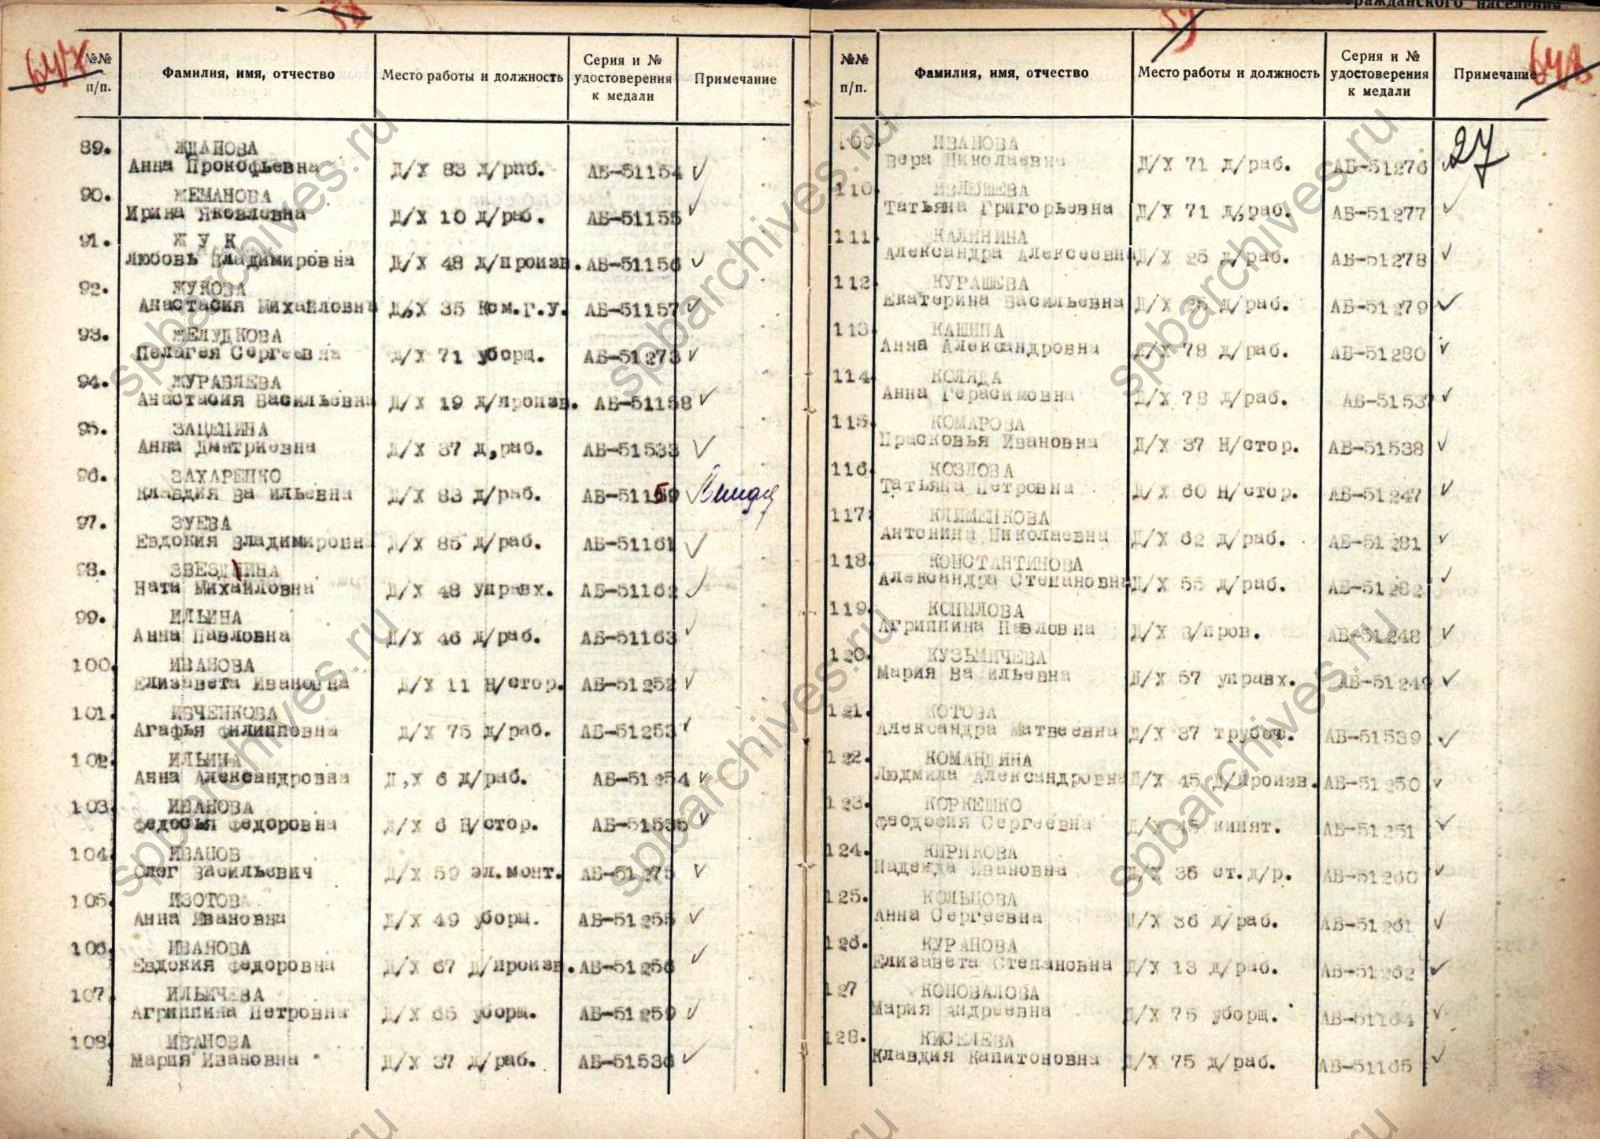 гражданского населения
58
57
647
648
№№ п/п. Фамилия, имя, отчество Место работы и должность Серия и № удостоверения к медали Примечание
89. ЖДАНОВА
Анна Прокофьевна Д/Х 83 д/раб. АБ-51154
90. ЖЕМАНОВА
Ирина Яковлевна Д/Х 10 д/раб. АБ-51155
91. Ж У К
Любовь Владимировна Д/Х 48 д/произв. АБ-51156
92. ЖУКОВА
Анастасия Михайловна Д,Х 35 Ком.Г.У. АБ-51157
93. ЖЕЛУДКОВА
Пелагея Сергеевна Д/Х 71 уборщ. АБ-51273
94. ЖУРАВЛЕВА
Анастасия Васильевна Д/Х 19 д/произв. АБ-51158
95. ЗАЦЕПИНА
Анна Дмитриевна Д/Х 37 д,раб. АБ-51533
96. ЗАХАРЕНКО
Клавдия Ва ильевна Д/Х 83 д/раб. АБ-51159
97. ЗУЕВА
Евдокия Владимировн Д/Х 85 д/раб. АБ-51161
98. ЗВЕЗДИНА
Ната Михайловна Д/Х 48 управх. АБ-51162
99. ИЛЬИНА
Анна Павловна Д/Х 46 д/раб. АБ-51163
100. ИВАНОВА
Елизавета Ивановна Д/Х 11 Н/стор. АБ-51252
101. ИВЧЕНКОВА
Агафья Филипповна Д/Х 75 д/раб. АБ-51253
102. ИЛЬИНА
Анна Александровна Д,Х 6 д/раб. АБ-51254
103. ИВАНОВА
Федосья Федоровна Д/Х 6 Н/стор. АБ-51535
104. ИВАНОВ
Олег Васильевич Д/Х 59 эл.монт. АБ-51275
105. ИЗОТОВА
Анна Ивановна Д/Х 49 уборщ. АБ-51255
106. ИВАНОВА
Евдокия Федоровна Д/Х 67 Д/произв. АБ-51256
107. ИЛЬИЧЕВА
Агриппина Петровна Д/Х 65 уборщ. АБ-51259
108. ИВАНОВА
Мария Ивановна Д/Х 37 д/раб. АБ-51536
№№ п/п. Фамилия, имя, отчество Место работы и должность Серия и № удостоверения к медали Примечание
27
109. ИВАНОВА
Вера Николаевна Д/Х 71 д/раб. АБ-51276
110. ИЗЛЮШЕВА
Татьяна Григорьевна Д/Х 71 д,раб. АБ-51277
111. КАЛИНИНА
Александра Алексеевн Д/Х 25 д/раб. АБ-51278
112. КУРАШЕВА
Екатерина Васильевна Д/Х 25 д/раб. АБ-51279
113. КАШИНА
Анна Александровна Д/Х 78 д/раб. АБ-51280
114. КОЛЯДА
Анна Герасимовна Д/Х 78 д/раб. АБ-5153
115. КОМАРОВА
Прасковья Ивановна Д/Х 37 Н/стор. АБ-51538
116. КОЗЛОВА
Татьяна Петровна Д/Х 60 Н/стор. АБ-51247
117. КЛИМЕНКОВА
Антонина Николаевна Д/Х 62 д/раб. АБ-51281
118. КОНСТАНТИНОВА
Александра Степановна Д/Х 55 д/раб. АБ-51282
119. КОПЫЛОВА
Агриппина Павловна Д/Х з/пров. АБ-51248
120. КУЗЬМИЧЕВА
Мария Ва ильевна Д/Х 57 управх. АБ-51249
121. КОТОВА
Александра Матвеевна Д/Х 37 трубоч. АБ-51539
122. КОМАНДИНА
Людмила Александровна Д/Х 45 Д/Произв. АБ-51250
123. КОРКЕШКО
Феодосия Сергеевна Д/Х 45 кипят. АБ-51251
124. КИРИКОВА
Надежда Ивановна Д/Х 36 ст.д/р. АБ-51260
125. КОЛЬЦОВА
Анна Сергеевна Д/Х 36 д/раб. АБ-51261
126. КУРАНОВА
Елизавета Степановна Д/Х 13 д/раб. АБ-51262
127 КОНОВАЛОВА
Мария Андреевна Д/Х 75 уборщ. АБ-51164
128. КИСЕЛЕВА
Клавдия Капитоновна Д/Х 75 д/раб. АБ-51165
spbarchives.ru
spbarchives.ru
spbarchives.ru
spbarchives.ru
spbarchives.ru
spbarchives.ru